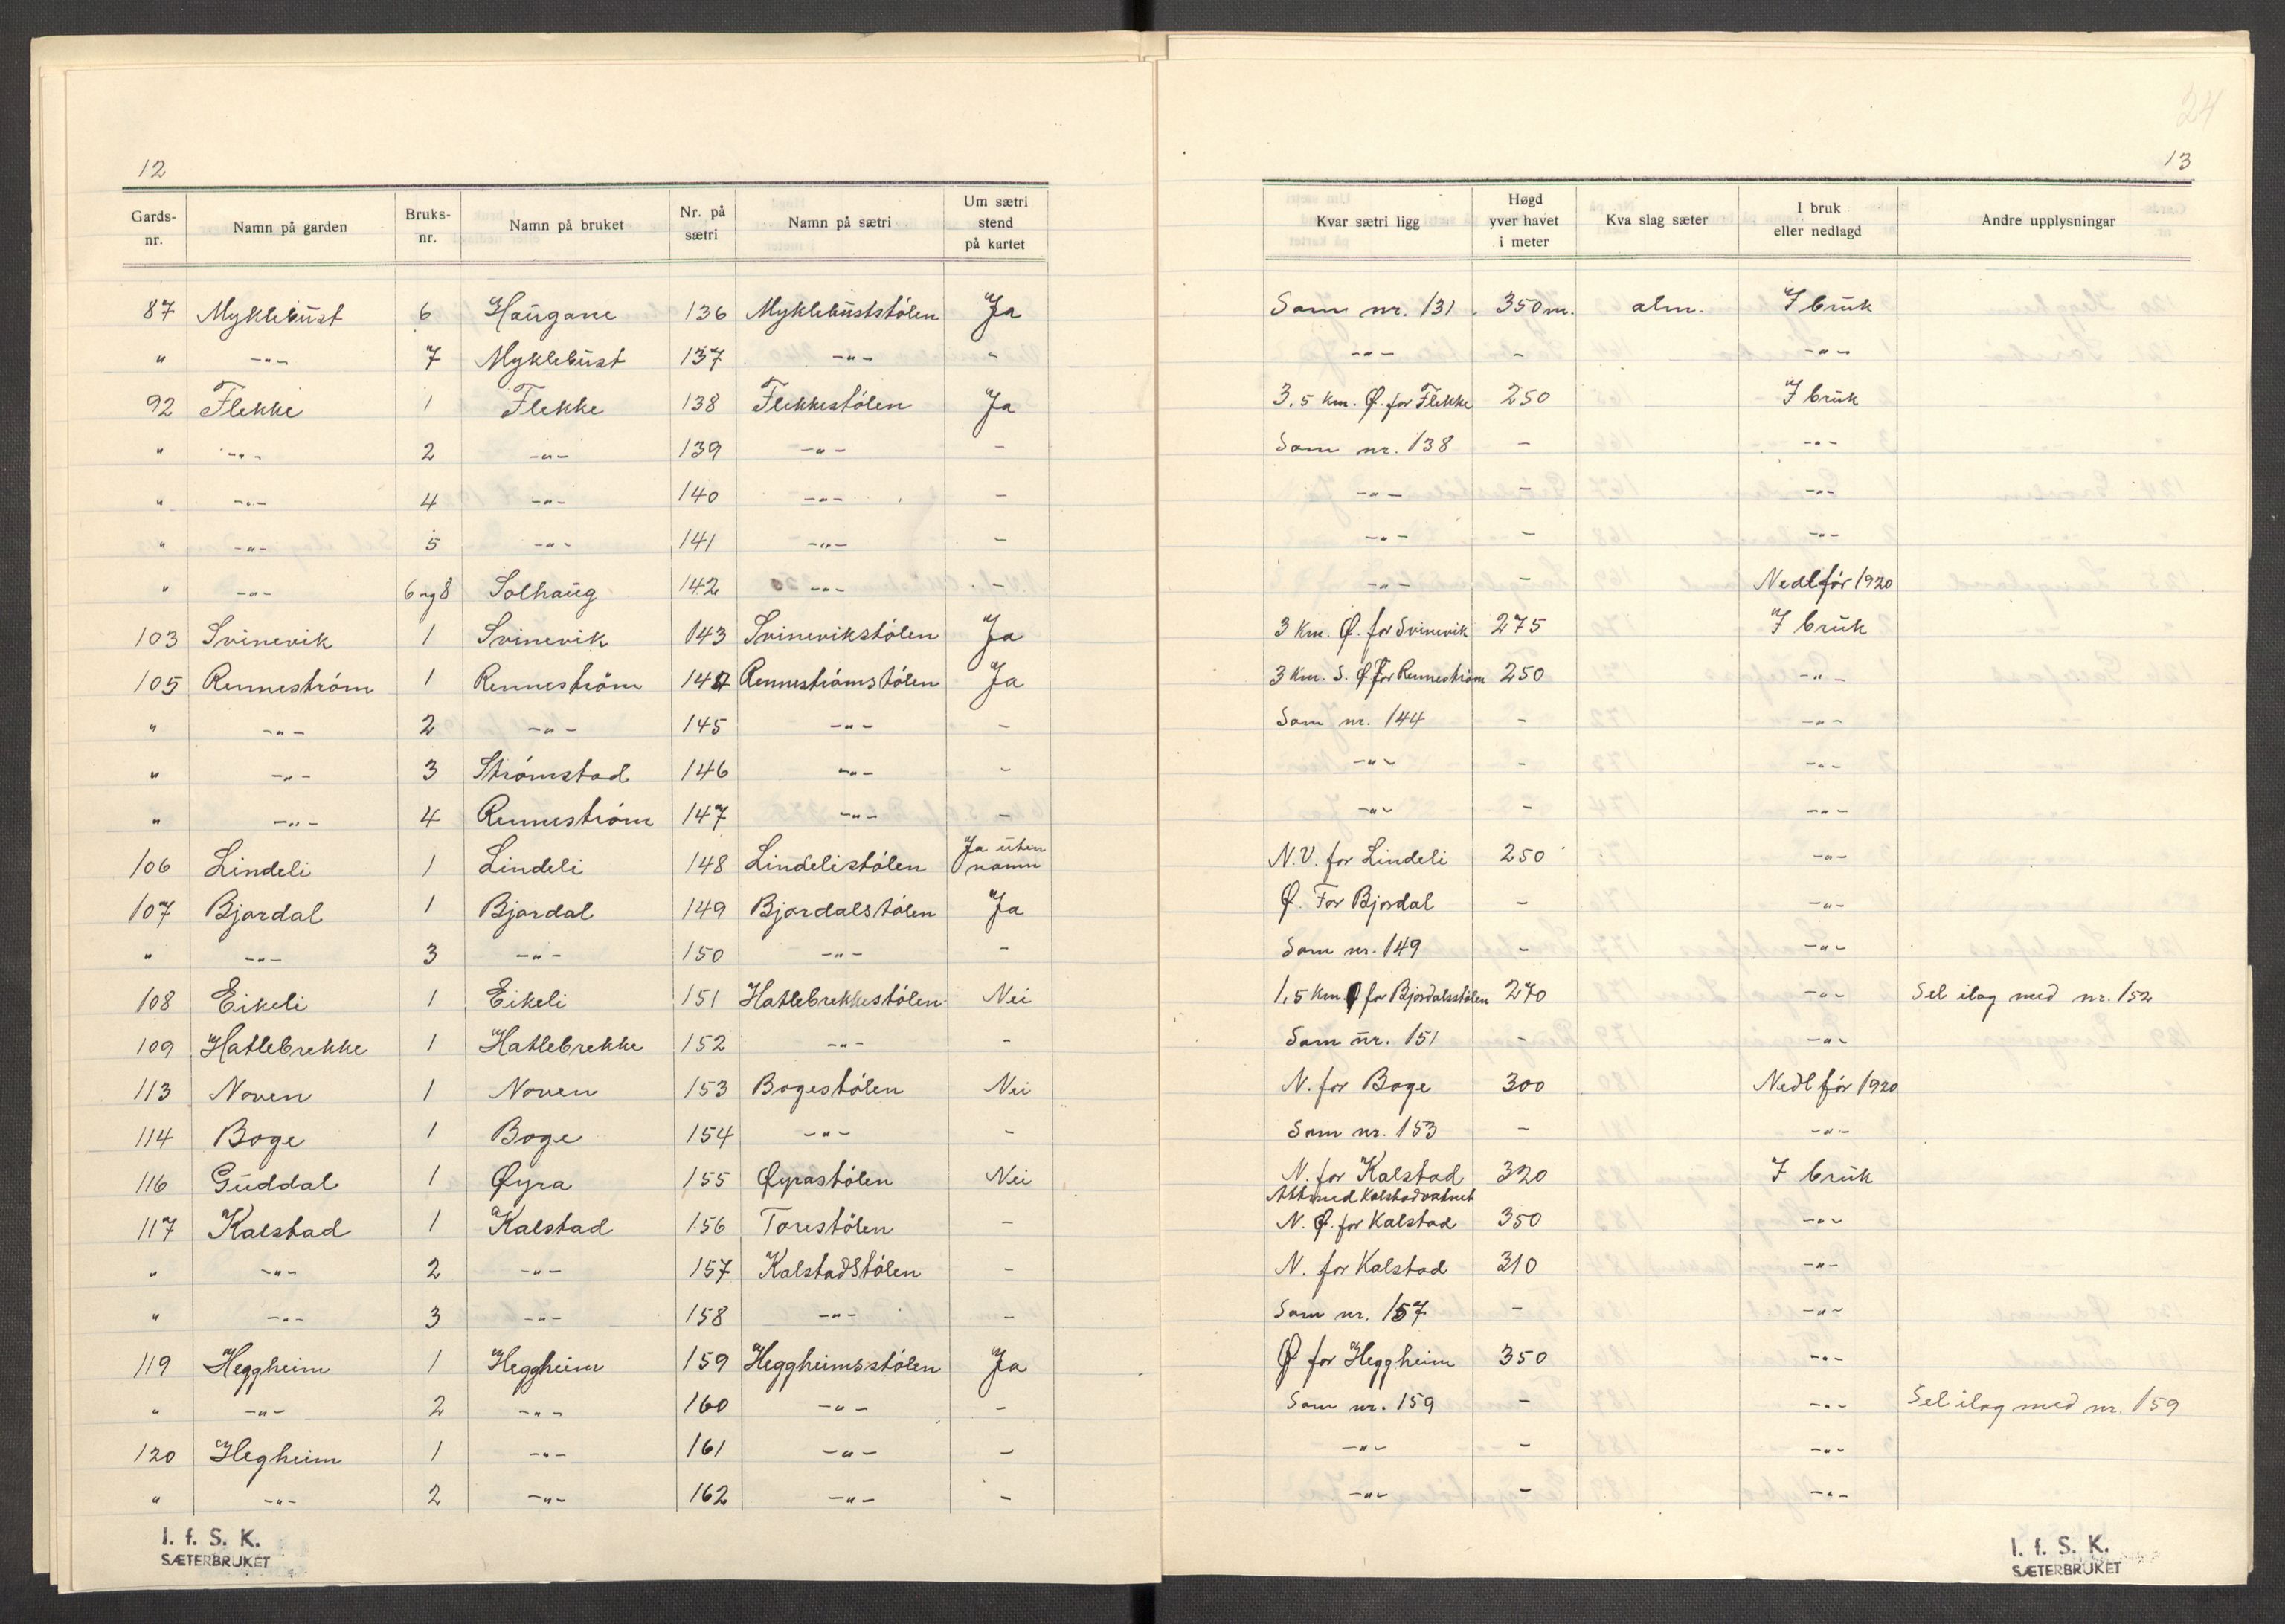 12
Gards-nr. Namn på garden Bruks-nr. Namn på bruket Nr. på sætri Namn på sætri Um sætri stend på kartet
87 Myklebust 6 Haugane 136 Myklebuststölen Ja
" -"- 7 Myklebust 137 -"- -
92 Flekke 1 Flekke 138 Flekkestölen Ja
" -"- 2 -"- 139 -"- -
" -"- 4 -"- 140 -"- -
" -"- 5 -"- 141 -"- -
" -"- 6 og 8 Solhaug 142 -"- -
103 Svinevik 1 Svinevik 143 Svinevikstölen Ja
105 Renneström 1 Renneström 144 Renneströmstölen Ja
" -"- 2 -"- 145 -"- -
" -"- 3 Strömstad 146 -"- -
" -"- 4 Renneström 147 -"- -
106 Lindeli 1 Lindeli 148 Lindelistölen Ja uten namn
107 Bjordal 1 Bjordal 149 Bjordalstölen Ja
" -"- 3 -"- 150 -"- -
108 Eikeli 1 Eikeli 151 Hatlebrekkestölen Nei
109 Hatlebrekke 1 Hatlebrekke 152 -"- -
113 Noven 1 Noven 153 Bogestölen Nei
114 Boge 1 Boge 154 -"- -
116 Guddal 1 Øyra 155 Øyrastölen Nei
117 Kalstad 1 Kalstad 156 Torestölen -
" -"- 2 -"- 157 Kalstadstölen -
" -"- 3 -"- 158 -"- -
119 Heggheim 1 Heggheim 159 Heggheimsstölen Ja
" -"- 2 -"- 160 -"- -
120 Hegheim 1 -"- 161 -"- -
" -"- 2 -"- 162 -"- -
I. f. S. K.
SÆTERBRUKET
24
13
Kvar sætri ligg Høgd yver havet i meter Kva slag sæter I bruk eller nedlagd Andre upplysningar
Som nr. 131. 350 m. alm. I bruk
-"- - -"-
3,5 km. Ø. for Flekke 250 I bruk
Som nr. 138 - -"-
-"- - -"-
-"- - -"-
-"- - Nedl för 1920
3 km. Ø. for Svinevik 275 I bruk
3 km. S. Ø for Renneström 250 -"-
Som nr. 144 - -"-
-"- - -"-
-"- - -"-
N.V. for Lindeli 250 -"-
Ø. For Bjordal - -"-
Som nr. 149 - -"-
1,5 km. Ø for Bjordalsstölen 270 -"- Sel ilag med nr. 152
Som nr. 151 - -"-
N. for Boge 300 Nedl för 1920
Som nr. 153 - -"-
N. for Kalstad 320 I bruk
Attmed Kalstadvatnet
N. Ø. for Kalstad 350 -"-
N. for Kalstad 310 -"-
Som nr. 157 - -"-
Ø for Heggheim 350 -"-
Som nr. 159 - -"- Sel ilag med nr. 159
-"- - -"-
-"- - -"-
I. f. S. K.
SÆTERBRUKET